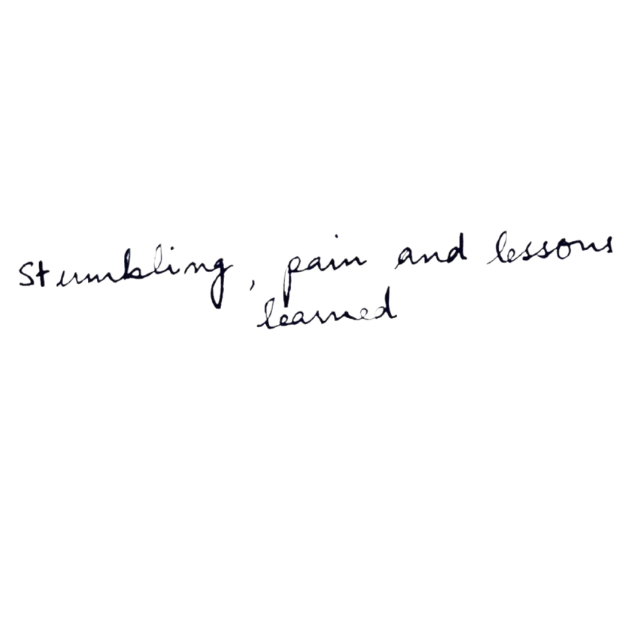 Stumbling, pain and lessons
learned